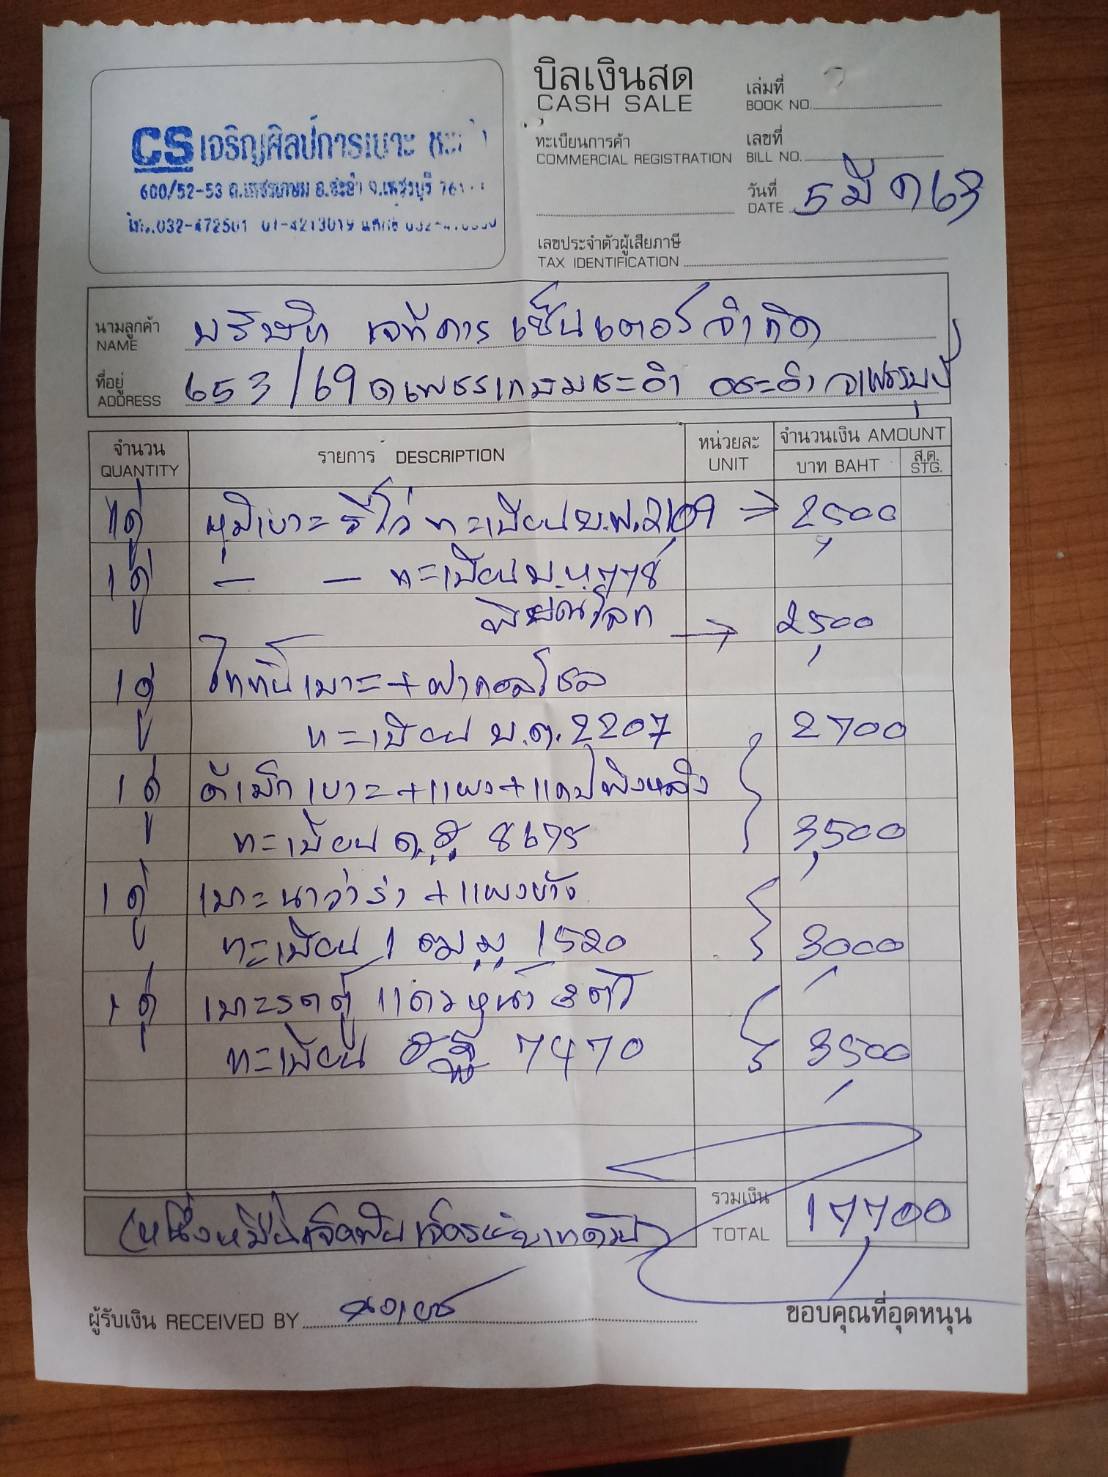 บิลเงินสด
CASH SALE
เล่มที่
BOOK NO.
ทะเบียนการค้า
COMMERCIAL REGISTRATION
เลขที่
BILL NO.
วันที่
DATE 5 มี ค 63
เลขประจำตัวผู้เสียภาษี
TAX IDENTIFICATION
CS เจริญศิลป์การเบาะ ชะอำ
600/52-53 ถ.เพชรเกษม อ.ชะอำ จ.เพชรบุรี
โทร.032-472501 01-4213019
นามลูกค้า
NAME บริษัท เจทีคาร เซ็นเตอร์ จำกัด
ที่อยู่
ADDRESS 653/69 ถ เพชรเกษม ชะอำ อ ชะอำ จ เพชรบุรี
จำนวน
QUANTITY
รายการ DESCRIPTION
หน่วยละ
UNIT
จำนวนเงิน AMOUNT
บาท BAHT
ส.ต.
STG.
1 คู่ หุ้มเบาะ รีโว่ ทะเบียน บ.พ. 2109 → 2,500
1 คู่ — — ทะเบียน 778
พิษณุโลก → 2,500
1 คู่ เบาะ + ฝาคอลโซล
ทะเบียน บ.ต. 2207 2700
1 คู่ ดีแม็ก เบาะ + แผง + แคปพิงหลัง
ทะเบียน 8675 3,500
1 คู่ เบาะ นาวาร่า + แผงข้าง
ทะเบียน 1 ฒม 1520 3,000
1 คู่ เบาะรถตู้ แถวหน้า 3 ตัว
ทะเบียน 7470 3,500
(หนึ่งหมื่นเจ็ดพันเจ็ดร้อยบาทถ้วน)
รวมเงิน
TOTAL 17,700
ผู้รับเงิน RECEIVED BY
ขอบคุณที่อุดหนุน